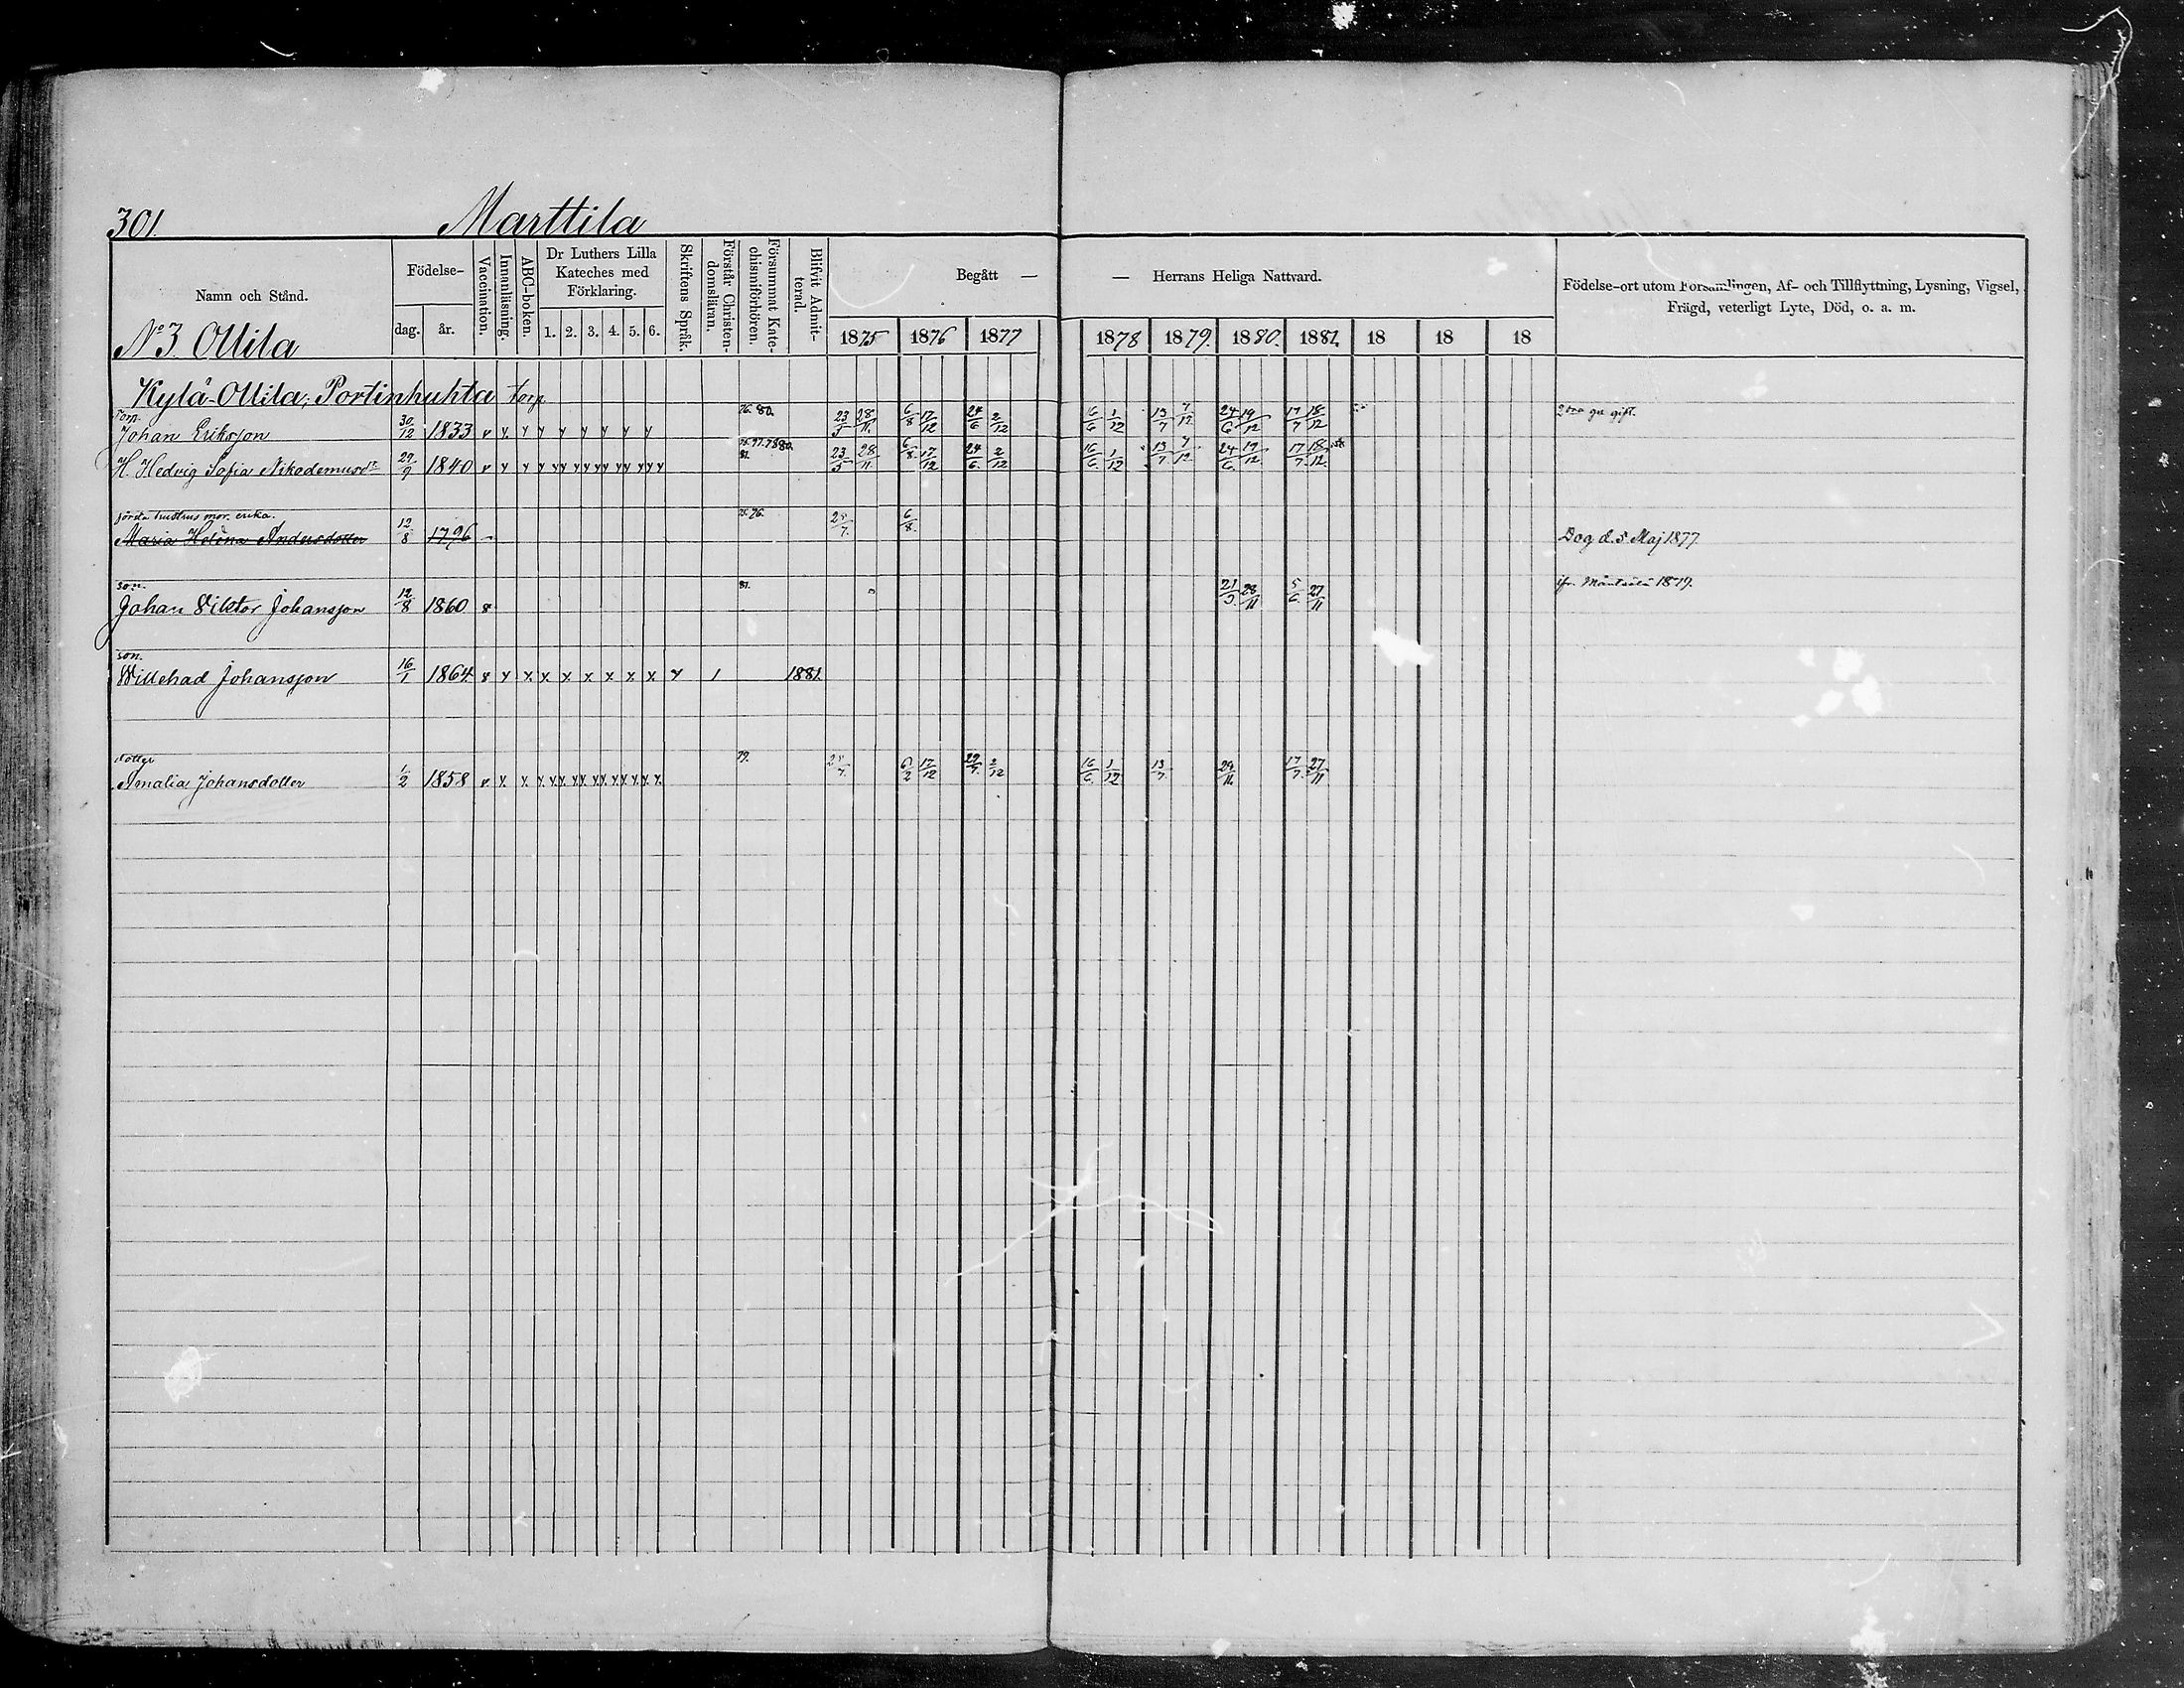 301.
Marttila
Namn och Stånd.
Födelse-
dag.
år.
Vaccination.
Innanläsning.
ABC-boken.
Dr Luthers Lilla
Kateches med
Förklaring.
1. 2. 3. 4. 5. 6.
Skriftens Språk.
Förstår Christen-
domsläran.
Försummat Kate-
chismiförhören.
Blifvit Admit-
terad.
Begått —
— Herrans Heliga Nattvard.
1875 1876 1877 1878 1879. 1880. 1881. 18 18 18
Födelse-ort utom Församlingen, Af- och Tillflyttning, Lysning, Vigsel,
Frägd, veterligt Lyte, Död, o. a. m.
No 3 Ollila
Kylä-Ollila, Portinhuhta torp
Torp.
Johan Eriksson 30/12 1833 v x y y y y y y y 76. 80. 23/5 28/11. 6/8 17/12 24/6 2/12 16/6 1/12 13/7 7/12 24/6 19/12 17/7 18/12 gift.
H. Hedvig Sofia Nikodemusdr 29/9 1840 81. 23/5 28/11 6/8 17/12 24/6. 2/12 16/6. 1/12 13/7 7/12 24/6. 19/12 17/7. 18/12.
första hustrus mor. enka.
Maria Helena Andersdotter 12/8 1796 6/8. Dog d. 5 Maj 1877.
son.
Johan Viktor Johansson 12/8 1860 81. 28/11 5/6. 27/11 1879.
son.
Willehad Johansson 16/1 1864 1 1881.
dotter
Amalia Johansdotter 1/2 1858 79. 17/12 2/12 16/6. 1/12 13/7. 29/11. 17/7. 27/11